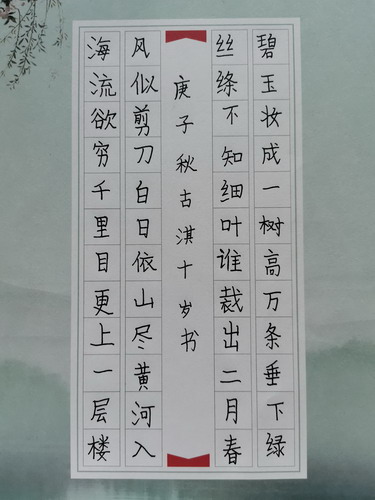 碧玉妆成一树高万条垂下绿
丝绦不知细叶谁裁出二月春
庚子秋古淇十岁书
风似剪刀白日依山尽黄河入
海流欲穷千里目更上一层楼